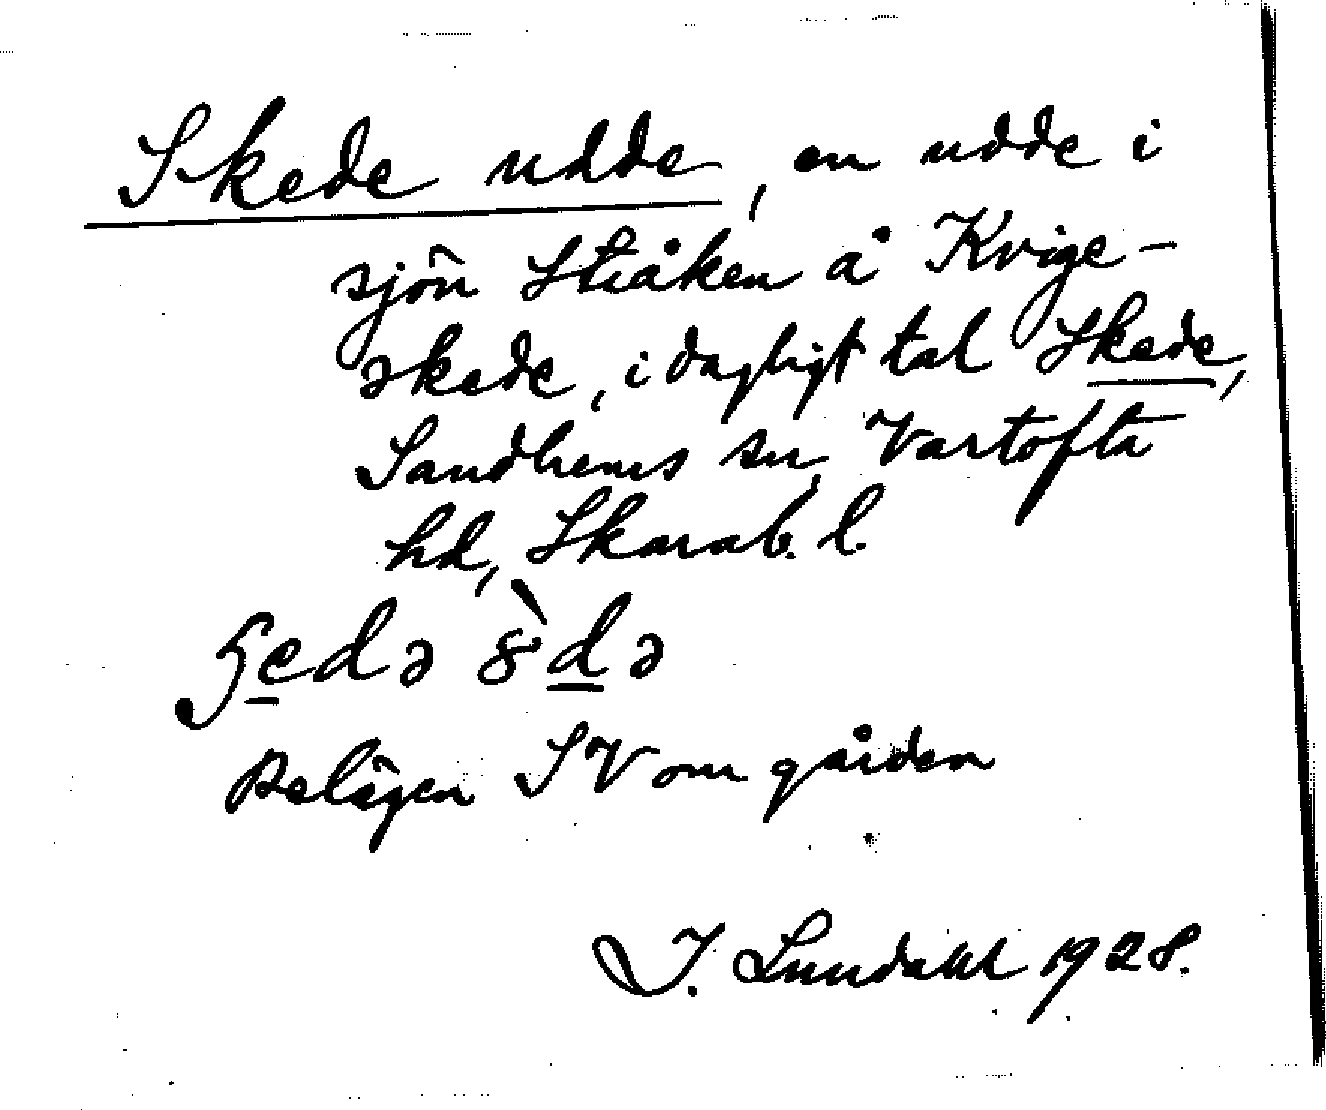 Skede udde, en udde i
sjön Stråken å Kvige-
skede, i dagligt tal Skede,
Sandhems sn, Vartofta
hd, Skarab. l.
Belägen SV om gården
I. Lundahl 1928.